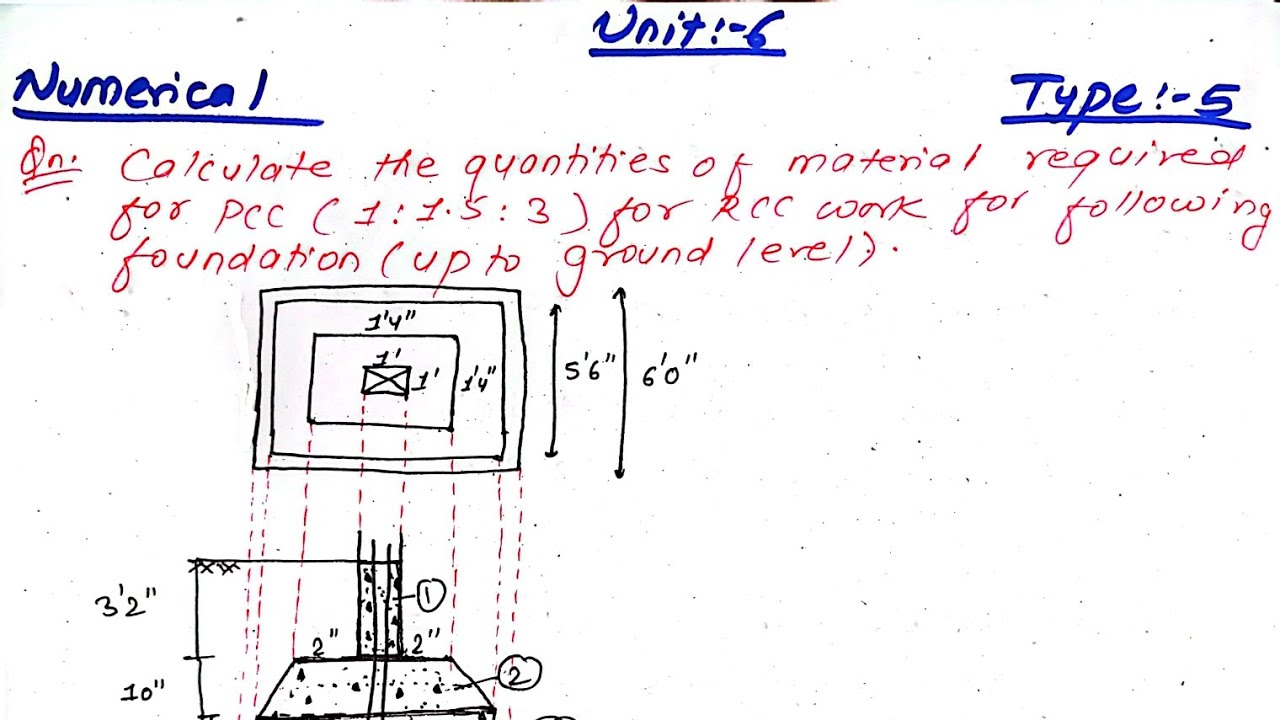 Unit:-6
Numerical
Type:-5
Qn: Calculate the quantities of material required
for PCC (1:1.5:3) for RCC work for following
foundation (up to ground level).
1'4"
1'
1'
1'4"
5'6"
6'0"
3'2"
1
2"
2"
2
10"